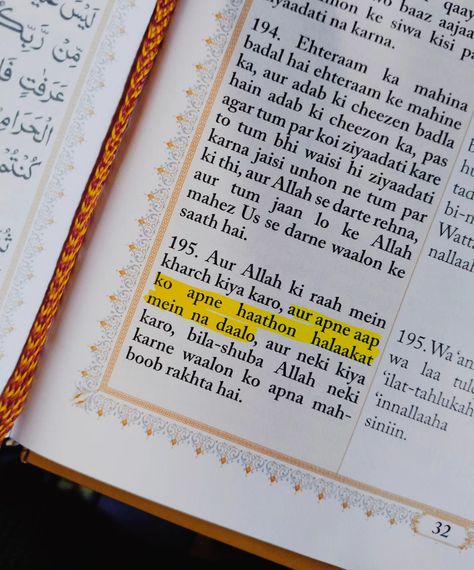 لَيْسَ
مِّن رَّبِّكُ
عَرَفَٰتٍ فَا
الْحَرَامِ
كُنتُمْ
baaz
ke siwa kisi
ziyaadati na karna.
194. Ehteraam ka mahina
badal hai ehteraam ke mahine
ka, aur adab ki cheezen badla
hain adab ki cheezon ka, pas
agar tum par koi ziyaadati kare
to tum bhi waisi hi ziyaadati
karna jaisi unhon ne tum par
ki thi, aur Allah se darte rehna,
aur tum jaan lo ke Allah
mahez Us se darne waalon ke
saath hai.
195. Aur Allah ki raah mein
kharch kiya karo, aur apne aap
ko apne haathon halaakat
mein na daalo, aur neki kiya
karo, bila-shuba Allah neki
karne waalon ko apna mah-
boob rakhta hai.
195. Wa'an
wa laa tul
'ilat-tahlukat
'innallaaha
siniin.
32